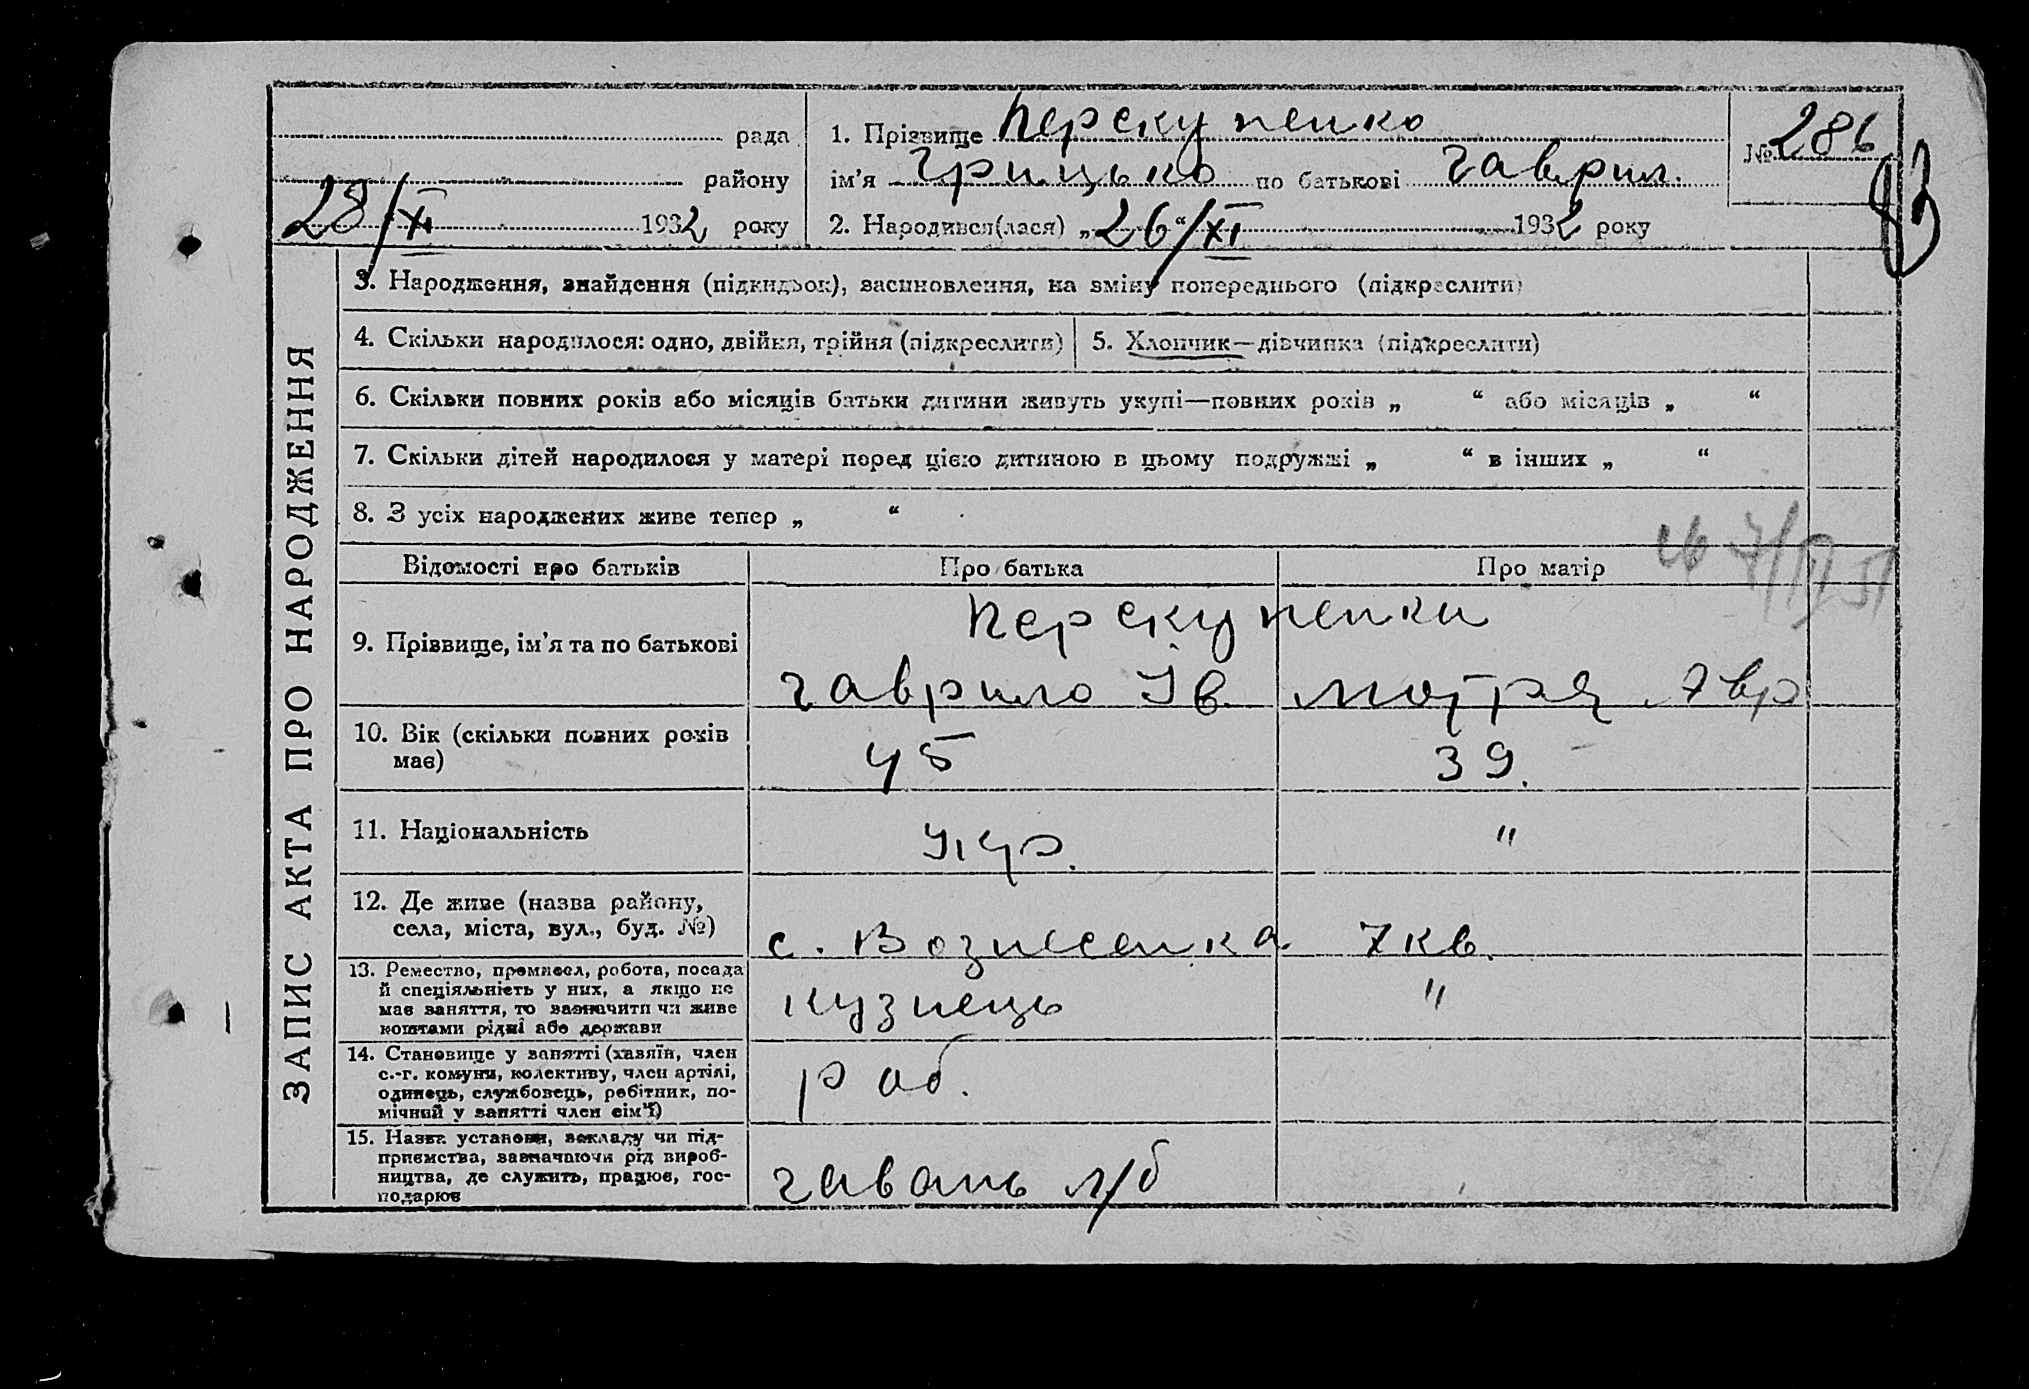 рада
району
28/XI 1932 року
1. Прізвище Перекупенко
ім'я Грицько по батькові Гаврил.
2. Народився(лася) „26“/XI 1932 року
№ 286
83
ЗАПИС АКТА ПРО НАРОДЖЕННЯ
3. Народження, знайдення (підкидьок), засиновлення, на зміну попереднього (підкреслити)
4. Скільки народилося: одно, двійня, трійня (підкреслити)
5. Хлопчик—дівчинка (підкреслити)
6. Скільки повних років або місяців батьки дитини живуть укупі—повних років „ “ або місяців „ “
7. Скільки дітей народилося у матері перед цією дитиною в цьому подружжі „ “ в інших „ “
8. З усіх народжених живе тепер „ “
Відомості про батьків
Про батька
Про матір
9. Прізвище, ім'я та по батькові
Перекупенки
Гаврило Ів.
Мотря
10. Вік (скільки повних років
має)
45
39.
11. Національність
Укр.
"
12. Де живе (назва району,
села, міста, вул., буд. №)
с. Вознесенка 7 кв.
13. Ремество, промисел, робота, посада
й спеціяльність у них, а якщо не
має заняття, то зазначити чи живе
коштами рідні або держави
кузнець
"
14. Становище у занятті (хазяїн, член
с.-г. комуни, колективу, член артілі,
одинець, службовець, робітник, по-
мічний у занятті член сім'ї)
роб.
15. Назва установи, закладу чи під-
приємства, зазначаючи рід вироб-
ництва, де служить, працює, гос-
подарює
гавань л/б